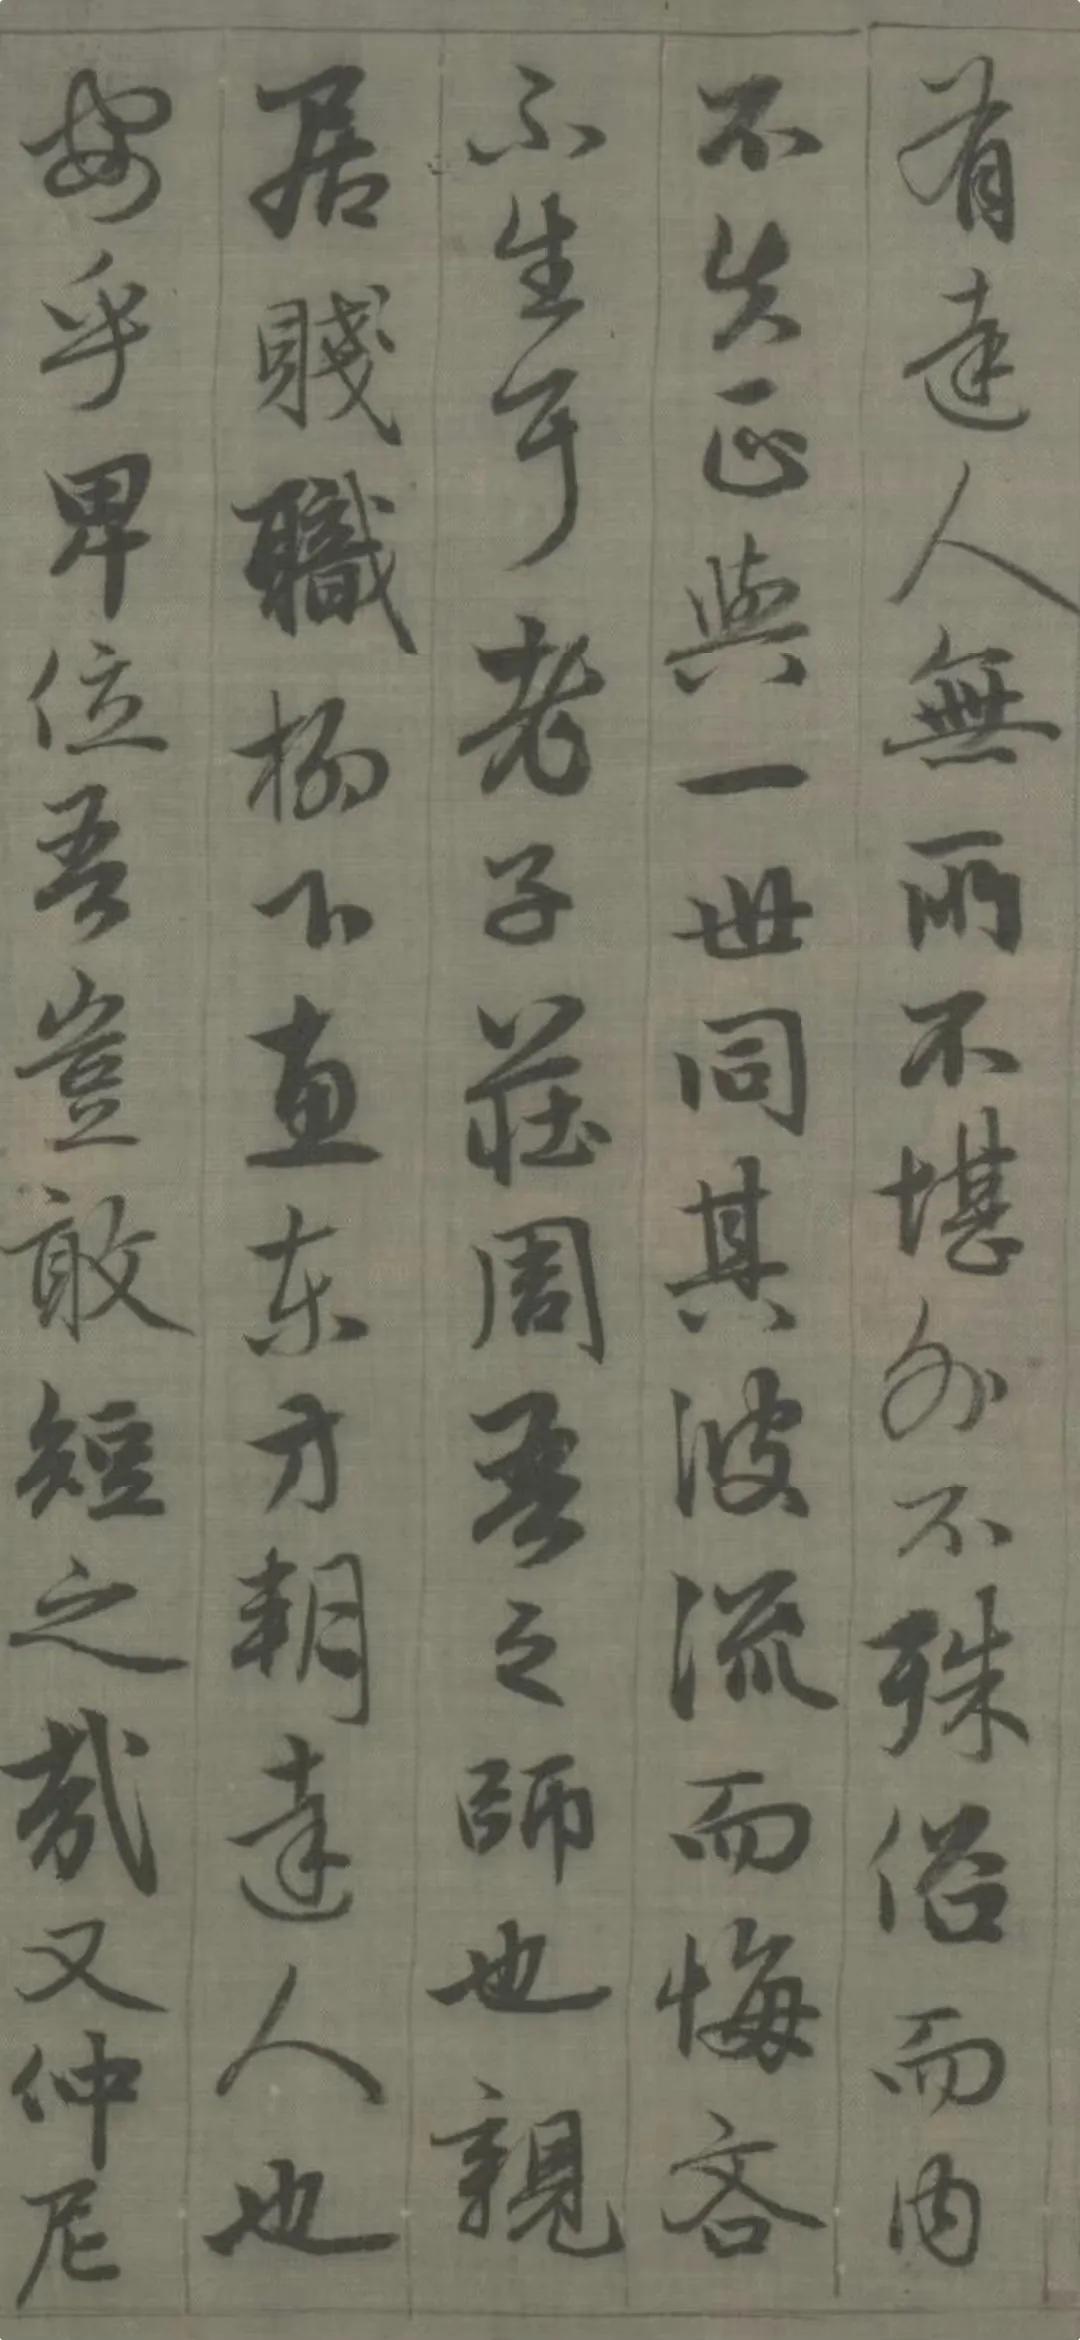 有達人無所不堪外不殊俗而内
不失正與一世同其波流而悔吝
不生耳老子莊周吾之師也親
居賤職柳下惠東方朔達人也
安乎卑位吾豈敢短之哉又仲尼